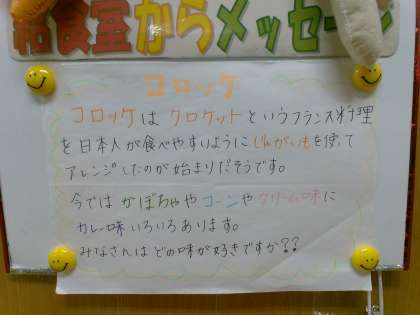 給食室からメッセージ
コロッケ
コロッケはクロケットというフランス料理
を日本人が食べやすいようにじゃがいもを使って
アレンジしたのが始まりだそうです。
今ではかぼちゃやコーンやクリーム味に
カレー味いろいろあります。
みなさんはどの味が好きですか??